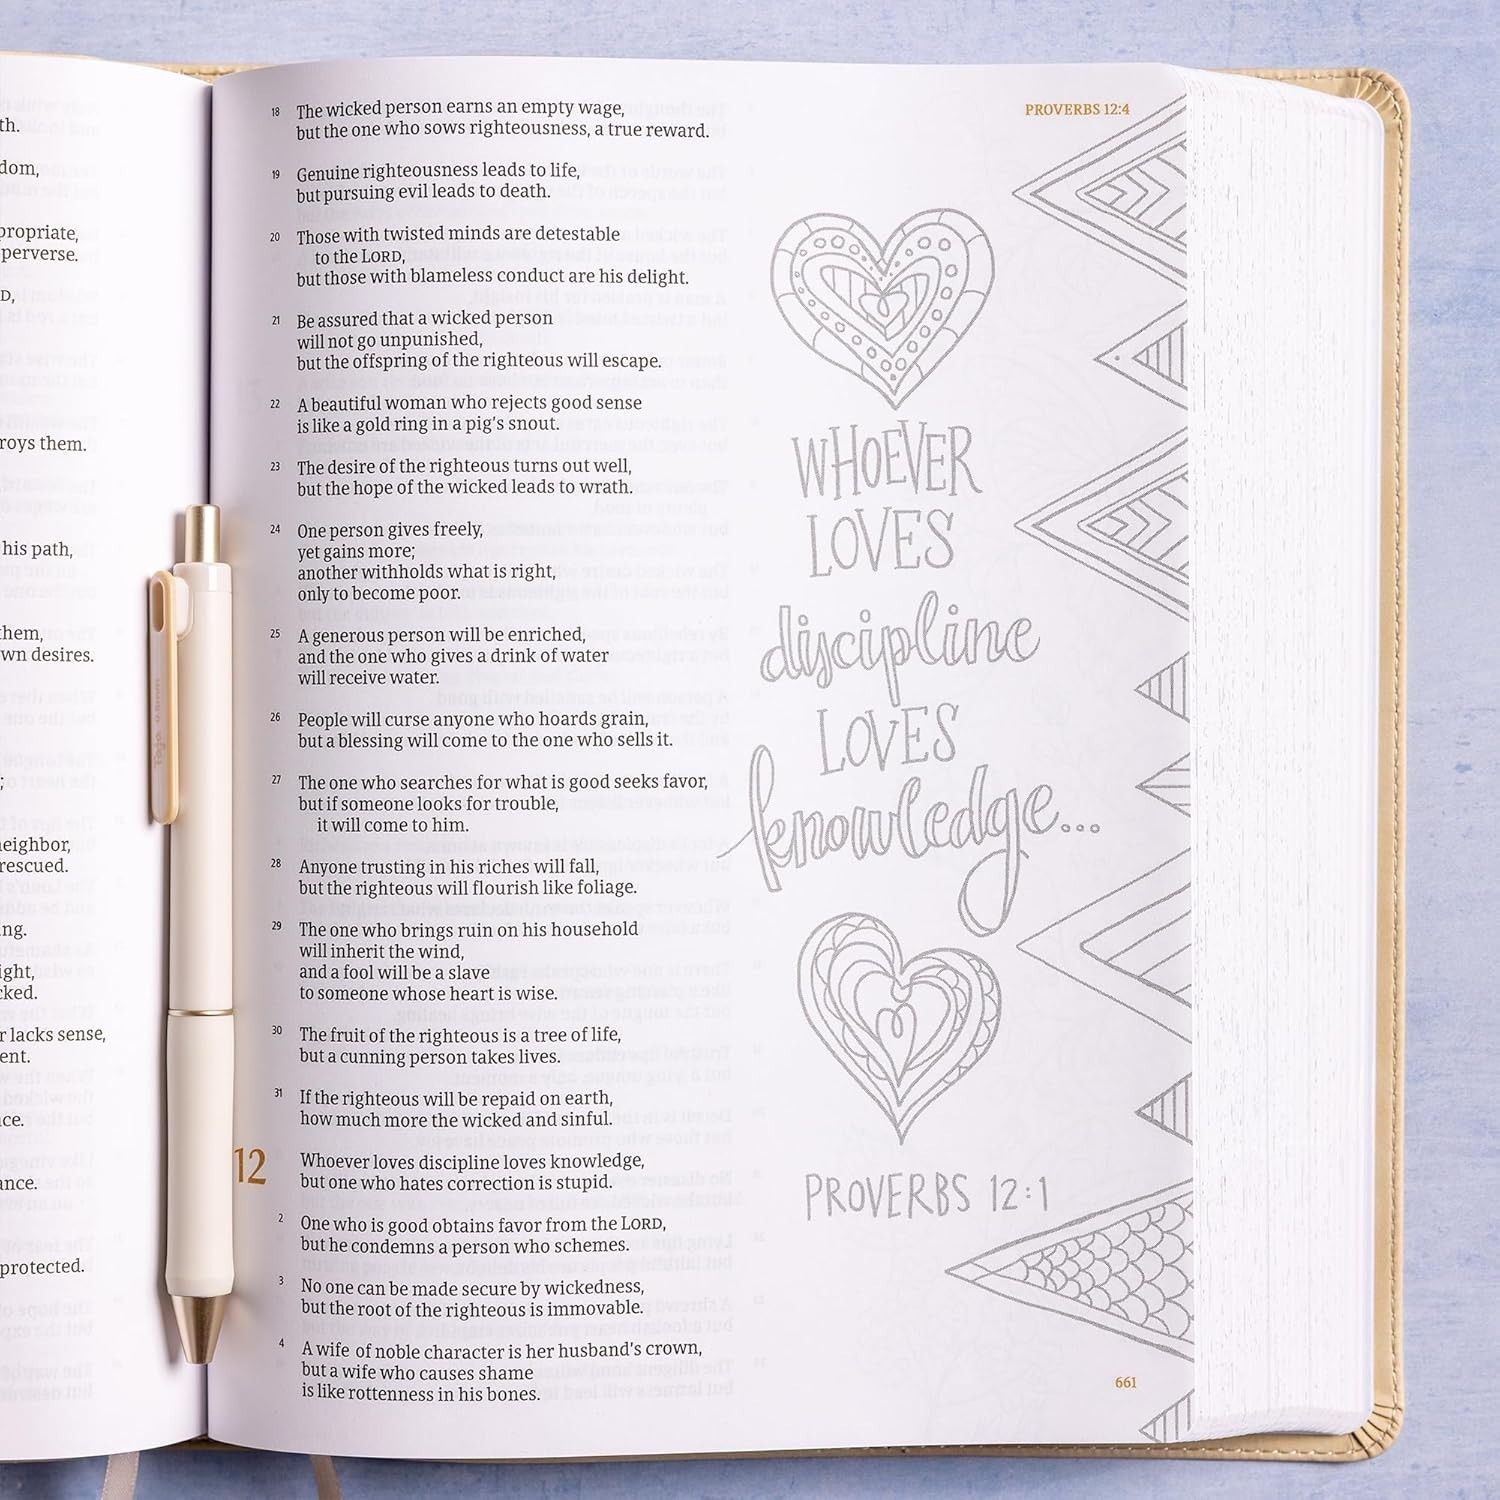 th.
dom,
propriate,
perverse.
D,
roys them.
his path,
them,
wn desires.
;
neighbor,
rescued.
ng.
ight,
cked.
r lacks sense,
ent.
ce.
ance.
protected.
PROVERBS 12:4
18 The wicked person earns an empty wage,
but the one who sows righteousness, a true reward.
19 Genuine righteousness leads to life,
but pursuing evil leads to death.
20 Those with twisted minds are detestable
to the LORD,
but those with blameless conduct are his delight.
21 Be assured that a wicked person
will not go unpunished,
but the offspring of the righteous will escape.
22 A beautiful woman who rejects good sense
is like a gold ring in a pig’s snout.
23 The desire of the righteous turns out well,
but the hope of the wicked leads to wrath.
24 One person gives freely,
yet gains more;
another withholds what is right,
only to become poor.
25 A generous person will be enriched,
and the one who gives a drink of water
will receive water.
26 People will curse anyone who hoards grain,
but a blessing will come to the one who sells it.
27 The one who searches for what is good seeks favor,
but if someone looks for trouble,
it will come to him.
28 Anyone trusting in his riches will fall,
but the righteous will flourish like foliage.
29 The one who brings ruin on his household
will inherit the wind,
and a fool will be a slave
to someone whose heart is wise.
30 The fruit of the righteous is a tree of life,
but a cunning person takes lives.
31 If the righteous will be repaid on earth,
how much more the wicked and sinful.
12 Whoever loves discipline loves knowledge,
but one who hates correction is stupid.
2 One who is good obtains favor from the LORD,
but he condemns a person who schemes.
3 No one can be made secure by wickedness,
but the root of the righteous is immovable.
4 A wife of noble character is her husband’s crown,
but a wife who causes shame
is like rottenness in his bones.
WHOEVER
LOVES
discipline
LOVES
knowledge...
PROVERBS 12:1
661